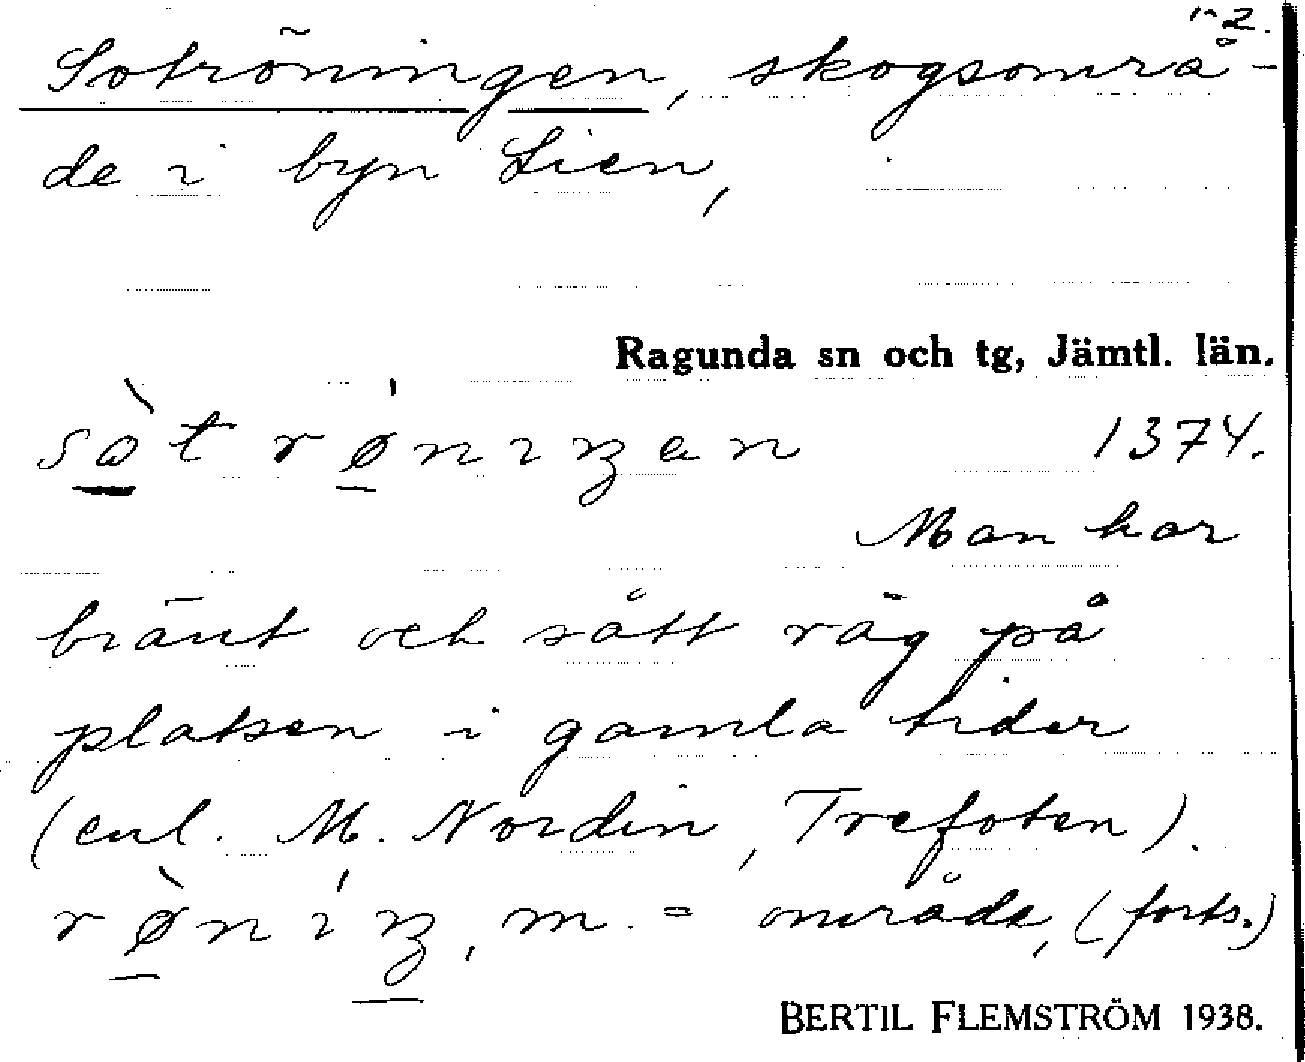 1-2.
Sotröningen, skogsområ-
de i byn Lien,
Ragunda sn och tg, Jämtl. län.
sòt rǿnıŋen 1374.
Man har
bränt och sått råg på
platsen i gamla tider
(enl. M. Nordin, Trefoten).
rø̀nıŋ, m. = område, (forts.)
BERTIL FLEMSTRÖM 1938.